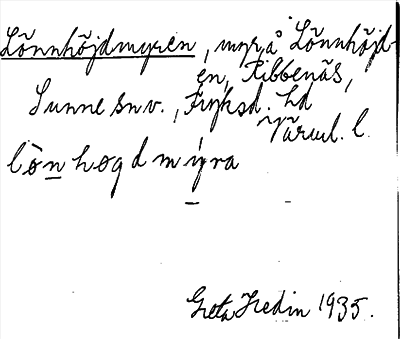 Lönnhöjdmyren, myr å Lönnhöjd-
en, Ribbenäs,
Sunne snv., Fryksd. hd
Värml. l.
lòn hogd myra
Greta Hedin 1935.